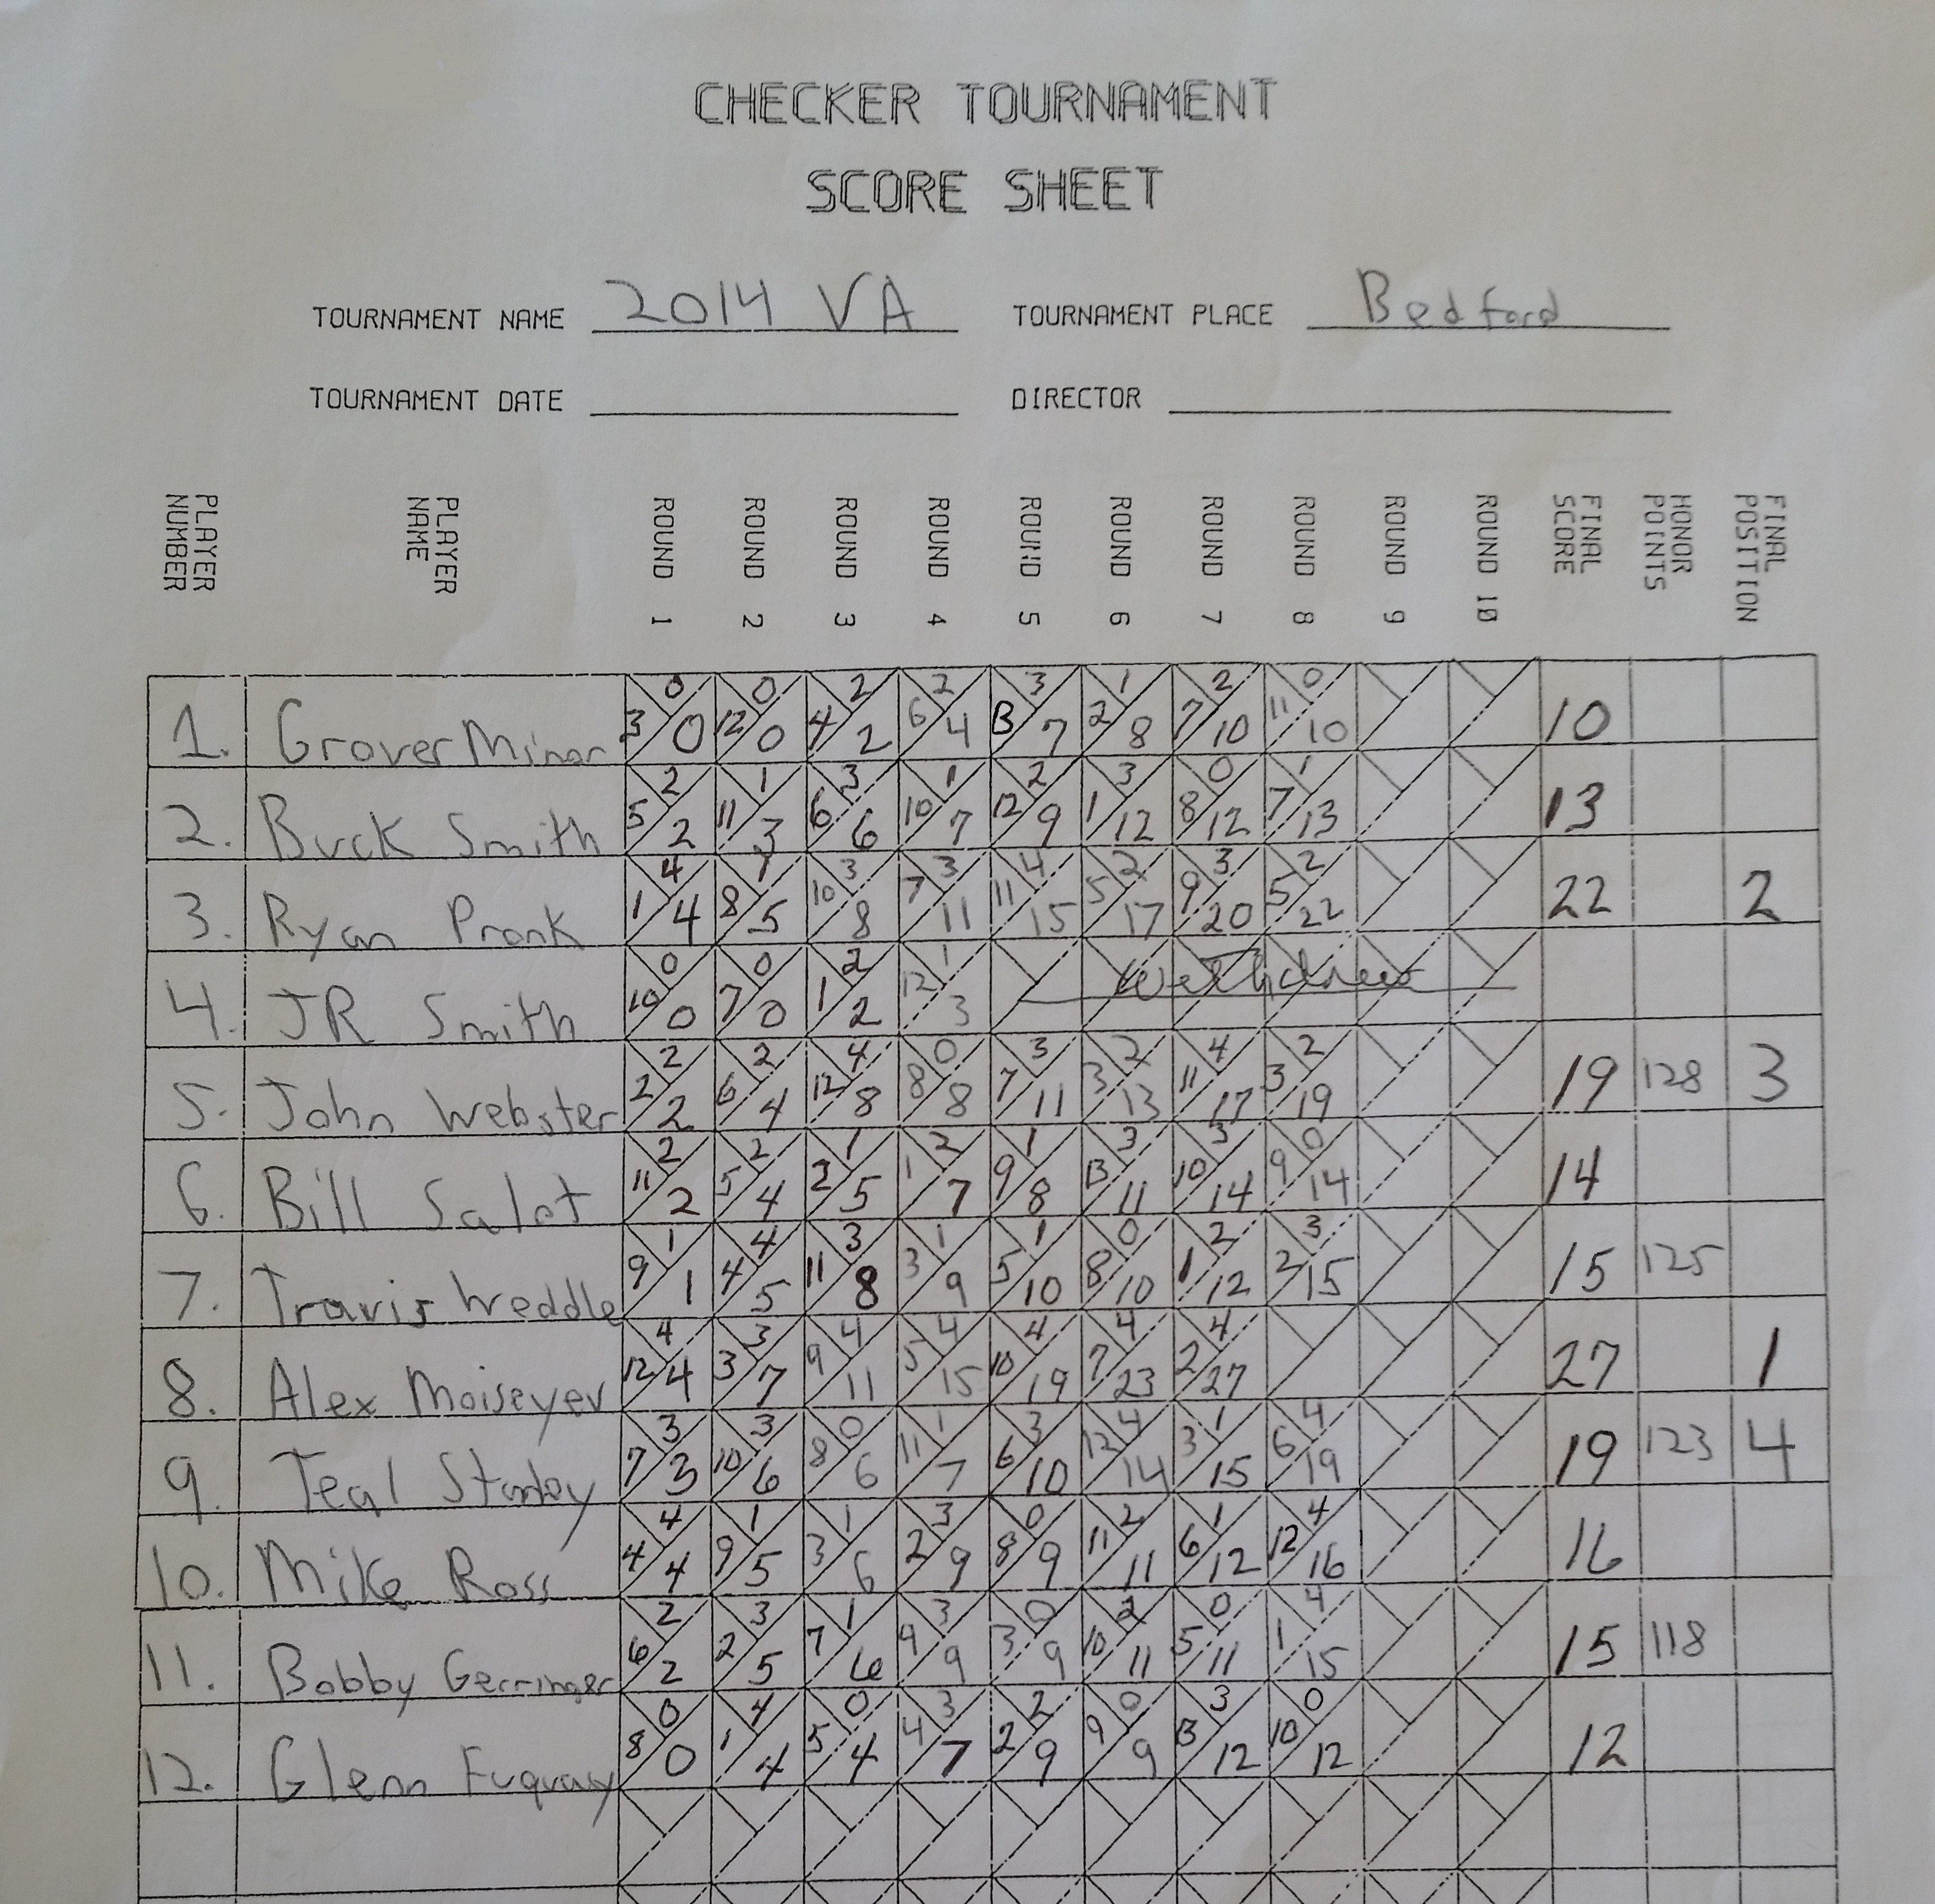 CHECKER TOURNAMENT
SCORE SHEET
TOURNAMENT NAME 2014 VA TOURNAMENT PLACE Bedford
TOURNAMENT DATE DIRECTOR
PLAYER NUMBER PLAYER NAME ROUND 1 ROUND 2 ROUND 3 ROUND 4 ROUND 5 ROUND 6 ROUND 7 ROUND 8 ROUND 9 ROUND 10 FINAL SCORE HONOR POINTS FINAL POSITION
0 0 2 2 3 1 2 0
1. Grover Minor 3 0 12 0 4 2 6 4 B 7 2 8 7 10 11 10 10
2 1 3 1 2 3 0 1
2. Buck Smith 5 2 11 3 6 6 10 7 12 9 1 12 8 12 7 13 13
4 1 3 3 4 2 3 2
3. Ryan Pronk 1 4 8 5 10 8 7 11 11 15 5 17 9 20 5 22 22 2
0 0 2 1 Withdrew
4. JR Smith 10 0 7 0 1 2 12 3
2 2 4 0 3 2 4 2
5. John Webster 2 2 6 4 12 8 8 8 7 11 3 13 11 17 3 19 19 128 3
2 2 1 2 1 3 3 0
6. Bill Salot 11 2 5 4 2 5 1 7 9 8 B 11 10 14 9 14 14
1 4 3 1 1 0 2 3
7. Travis Weddle 9 1 4 5 11 8 3 9 5 10 8 10 1 12 2 15 15 125
4 3 4 4 4 4 4
8. Alex Moiseyev 12 4 3 7 9 11 5 15 10 19 7 23 2 27 27 1
3 3 0 1 3 4 1 4
9. Teal Stanley 7 3 10 6 8 6 11 7 6 10 12 14 3 15 6 19 19 123 4
4 1 1 3 0 2 1 4
10. Mike Ross 4 4 9 5 3 6 2 9 8 9 11 11 6 12 12 16 16
2 3 1 3 0 2 0 4
11. Bobby Gerringer 6 2 2 5 7 6 9 9 3 9 10 11 5 11 1 15 15 118
0 4 0 3 2 0 3 0
12. Glenn Fuquay 8 0 1 4 5 4 4 7 2 9 9 9 B 12 10 12 12